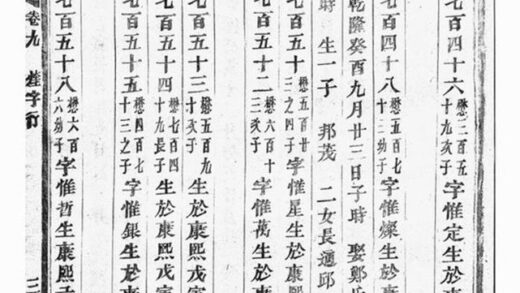 七百四十六 懋二百五十九次子 字惟定生於
七百四十八 懋五百五十二幼子 字惟燦生於康
乾隆癸酉九月廿三日子時 娶鄭氏
時 生一子 邦茂 二女長適邱
七百五十 懋五百廿三之四子 字惟星生於康
七百五十二 懋六百十三次子 字惟萬生於
七百五十三 懋五百九十次子 生於康熙戊寅
七百五十四 懋七百四十九長子 生於康熙戊寅
七百五十五 懋四百七十三之子 字惟銀生於
七百五十八 懋六百六幼子 字惟哲生於康熙
卷九 字行 三